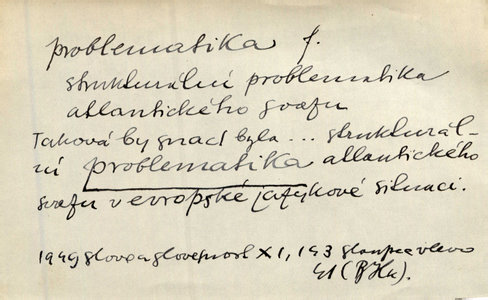 problematika f.
strukturální problematika
atlantického svazu
Taková by snad byla ... strukturál-
ní problematika atlantického
svazu v evropské jazykové situaci.
1949 Slovo a slovesnost XI, 143 sloupec vlevo